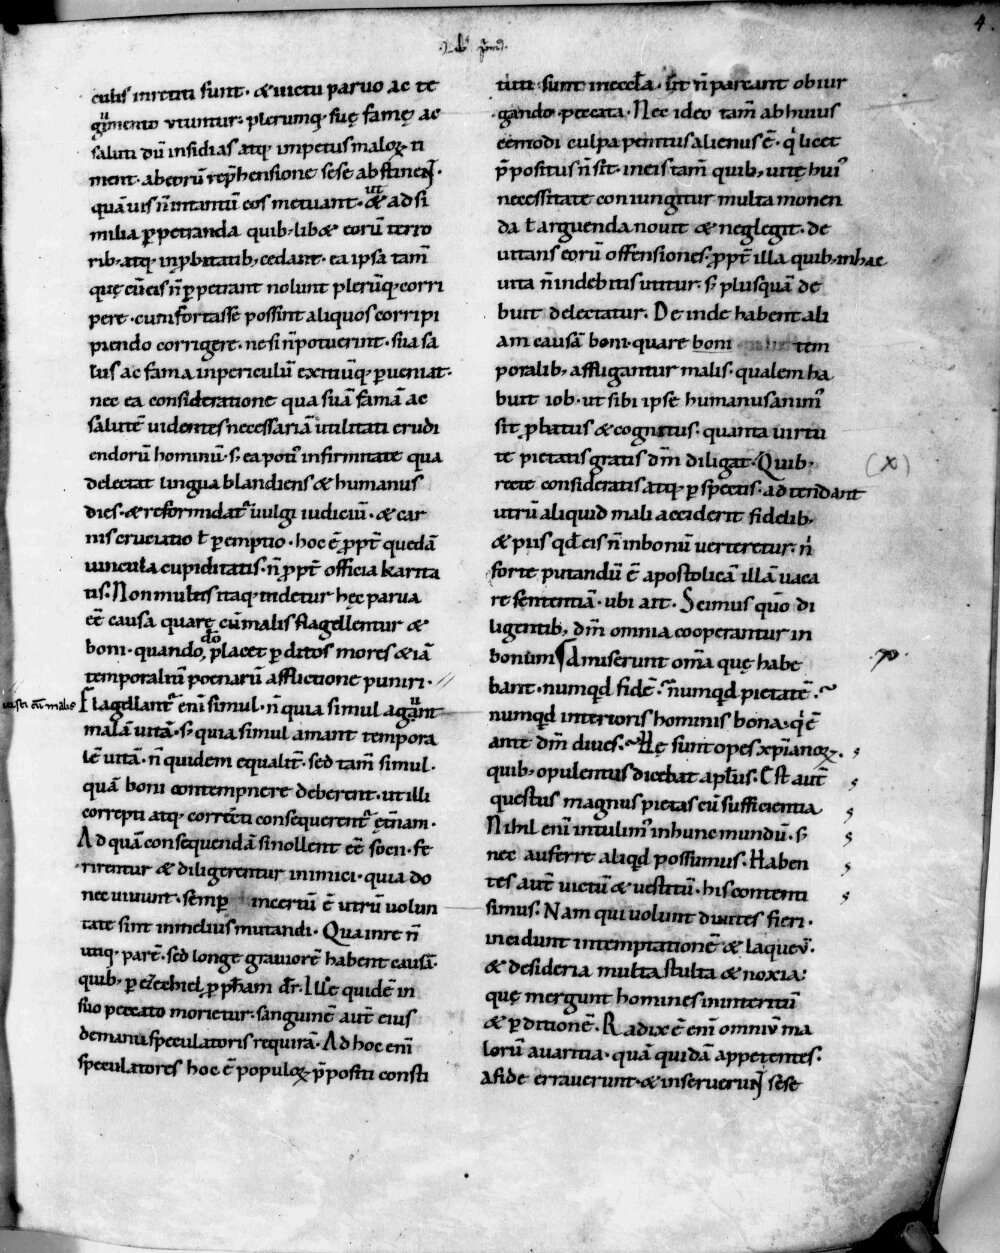 4.
·Lib' p̄m9·
culis inretiti sunt · & uictu paruo ac te
gu̍mento utuntur: plerumq; suę famę ac
saluti dū insidias atq; impetus maloꝝ ti
ment · ab eorū rep̄hensione sese abstineNT ·
quāuis n̄ intantū eos metuant · ut & ad si
milia ꝑpetranda quib; lib& eorū terro
rib; atq; inꝓbitatib; cedant · ea ipsa tam̄
quę cū eis n̄ ꝑpetrant nolunt plerūq; corri
pere · cum fortasse possint aliquos corripi
piendo corrigere · ne si n̄ potuerint · sua sa
lus ac fama inpericulū exitiūq; ꝑueniat ·
nec ea consideratione qua suā famā ac
salutē uident necessariā utilitati erudi
endorū hominū · s; ea poti' infirmitate qua
delectat lingua blandiens & humanus
dies · & reformidat' uulgi iudiciū · & car
nis cruciatio ł ꝑemptio · hoc ē ꝓpt̄ quedā
uincula cupiditatis · n̄ ꝓpt̄ officia karita
tis: Non multis itaq; uidetur hęc parua
ēē causa quarę cū malis flagellentur &
boni · quando dō placet ꝑditos mores & iā
temporaliū poenarū afflictione puniri · //
Flagellant' enī simul · n̄ quia simul agunt
malā uitā · s; quia simul amant tempora
lē uitā · n̄ quidem equalit̄ · sed tam̄ simul ·
quā boni contempnere deberent · ut illi
correpti atq; correcti consequerent' ęt̄nam ·
Ad quā consequendā si nollent ēē socii · fe
rirentur & diligerentur inimici · quia do
nec uiuunt · semꝑ incertū ē utrū uolun
tate sint inmelius mutandi · Qua in re n̄
utiq; parē · sed longe grauiorē habent causā ·
quib; ꝑ ezechiel ꝑ ꝓph̄am dr̄ · Ille quidē in
suo peccato morietur · sanguinē aut̄ eius
demanu speculatoris requirā · Ad hoc enī
speculatores hoc ē populoꝝ p̄positi consti
tuti sunt in eccl̄a · ut n̄ parcant obiur
gando peccata · Nec ideo tam̄ ab huius
cemodi culpa penitus alienus ē · q'licet
p̄positus n̄ sit · in eis tam̄ quib; uitę hui'
necessitate coniungitur multa monen
da ł arguenda nouit & neglegit · de
uitans eorū offensiones · ꝓpt̄ illa quib; inhac
uita n̄ indebitis utitur · s; plusquā de
buit delectatur. Deinde habent ali
am causā boni · quare boni tem
poralib; affligantur malis · qualem ha
buit iob · ut sibi ipse humanus anim'
sit ꝓbatus & cognitus · quanta uirtu
te pietatis gratis dm̄ diligat · Quib;
recte consideratis · atq; ꝑspectis · adtendant
utrū aliquid mali acciderit fidelib;
& piis qđ eis n̄ inbonū uerteretur · n'
forte putandū ē apostolicā illā uaca
re sententiā · ubi ait · Scimus quō di
ligentib; dm̄ omnia cooperantur in
bonum Amiserunt om̄a quę habe
bant · numqđ fidē · numqđ pietatē ·
numqđ interioris hominis bona · q' ē
ante dm̄ diues · Hę sunt opes xp̄ianoꝝ ·
quib; opulentus dicebat apl̄us · Est aut̄
questus magnus pietas cū sufficientia
Nihil enī intulim' in hunc mundū · s;
nec auferre aliqđ possumus · Haben
tes aut̄ uictū & uestitū · his contenti
simus. Nam qui uolunt diuites fieri ·
incidunt intemptationē & laqueū ·
& desideria multa stulta & noxia:
quę mergunt homines ininteritū
& ꝑditionē · Radix ē enī omniū ma
lorū auaritia · quā quidā appetentes ·
afide errauerunt · & inserueruNT sese
(x)